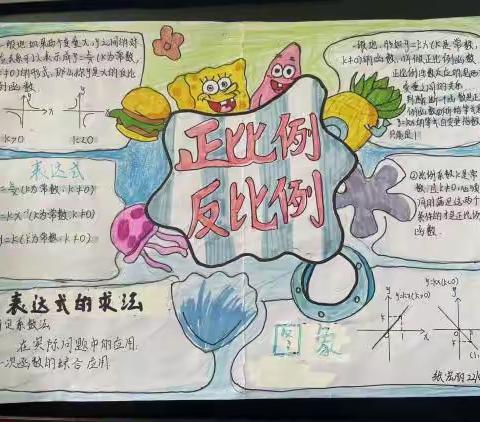 一般地,如果两个变量x,y之间的对
应关系可以表示成y=k/x(k为常数,
k≠0)的形式,那么称y是x的反比
例函数.
x
k>0
k<0
一般地,形如y=kx(k是常数,
k≠0)的函数,叫做正比例函数
正比例
反比例
表达式
y=k/x(k为常数,k≠0)
y=kx⁻¹(k为常数,k≠0)
xy=k(k为常数,k≠0)
①比例系数k是常
数,且k≠0
条件的才是正比例
函数.
表达式的求法
待定系数法
在实际问题中的应用
一次函数的综合应用
图象
y=kx(k>0)
y=kx(k<0)
y
x
k
1